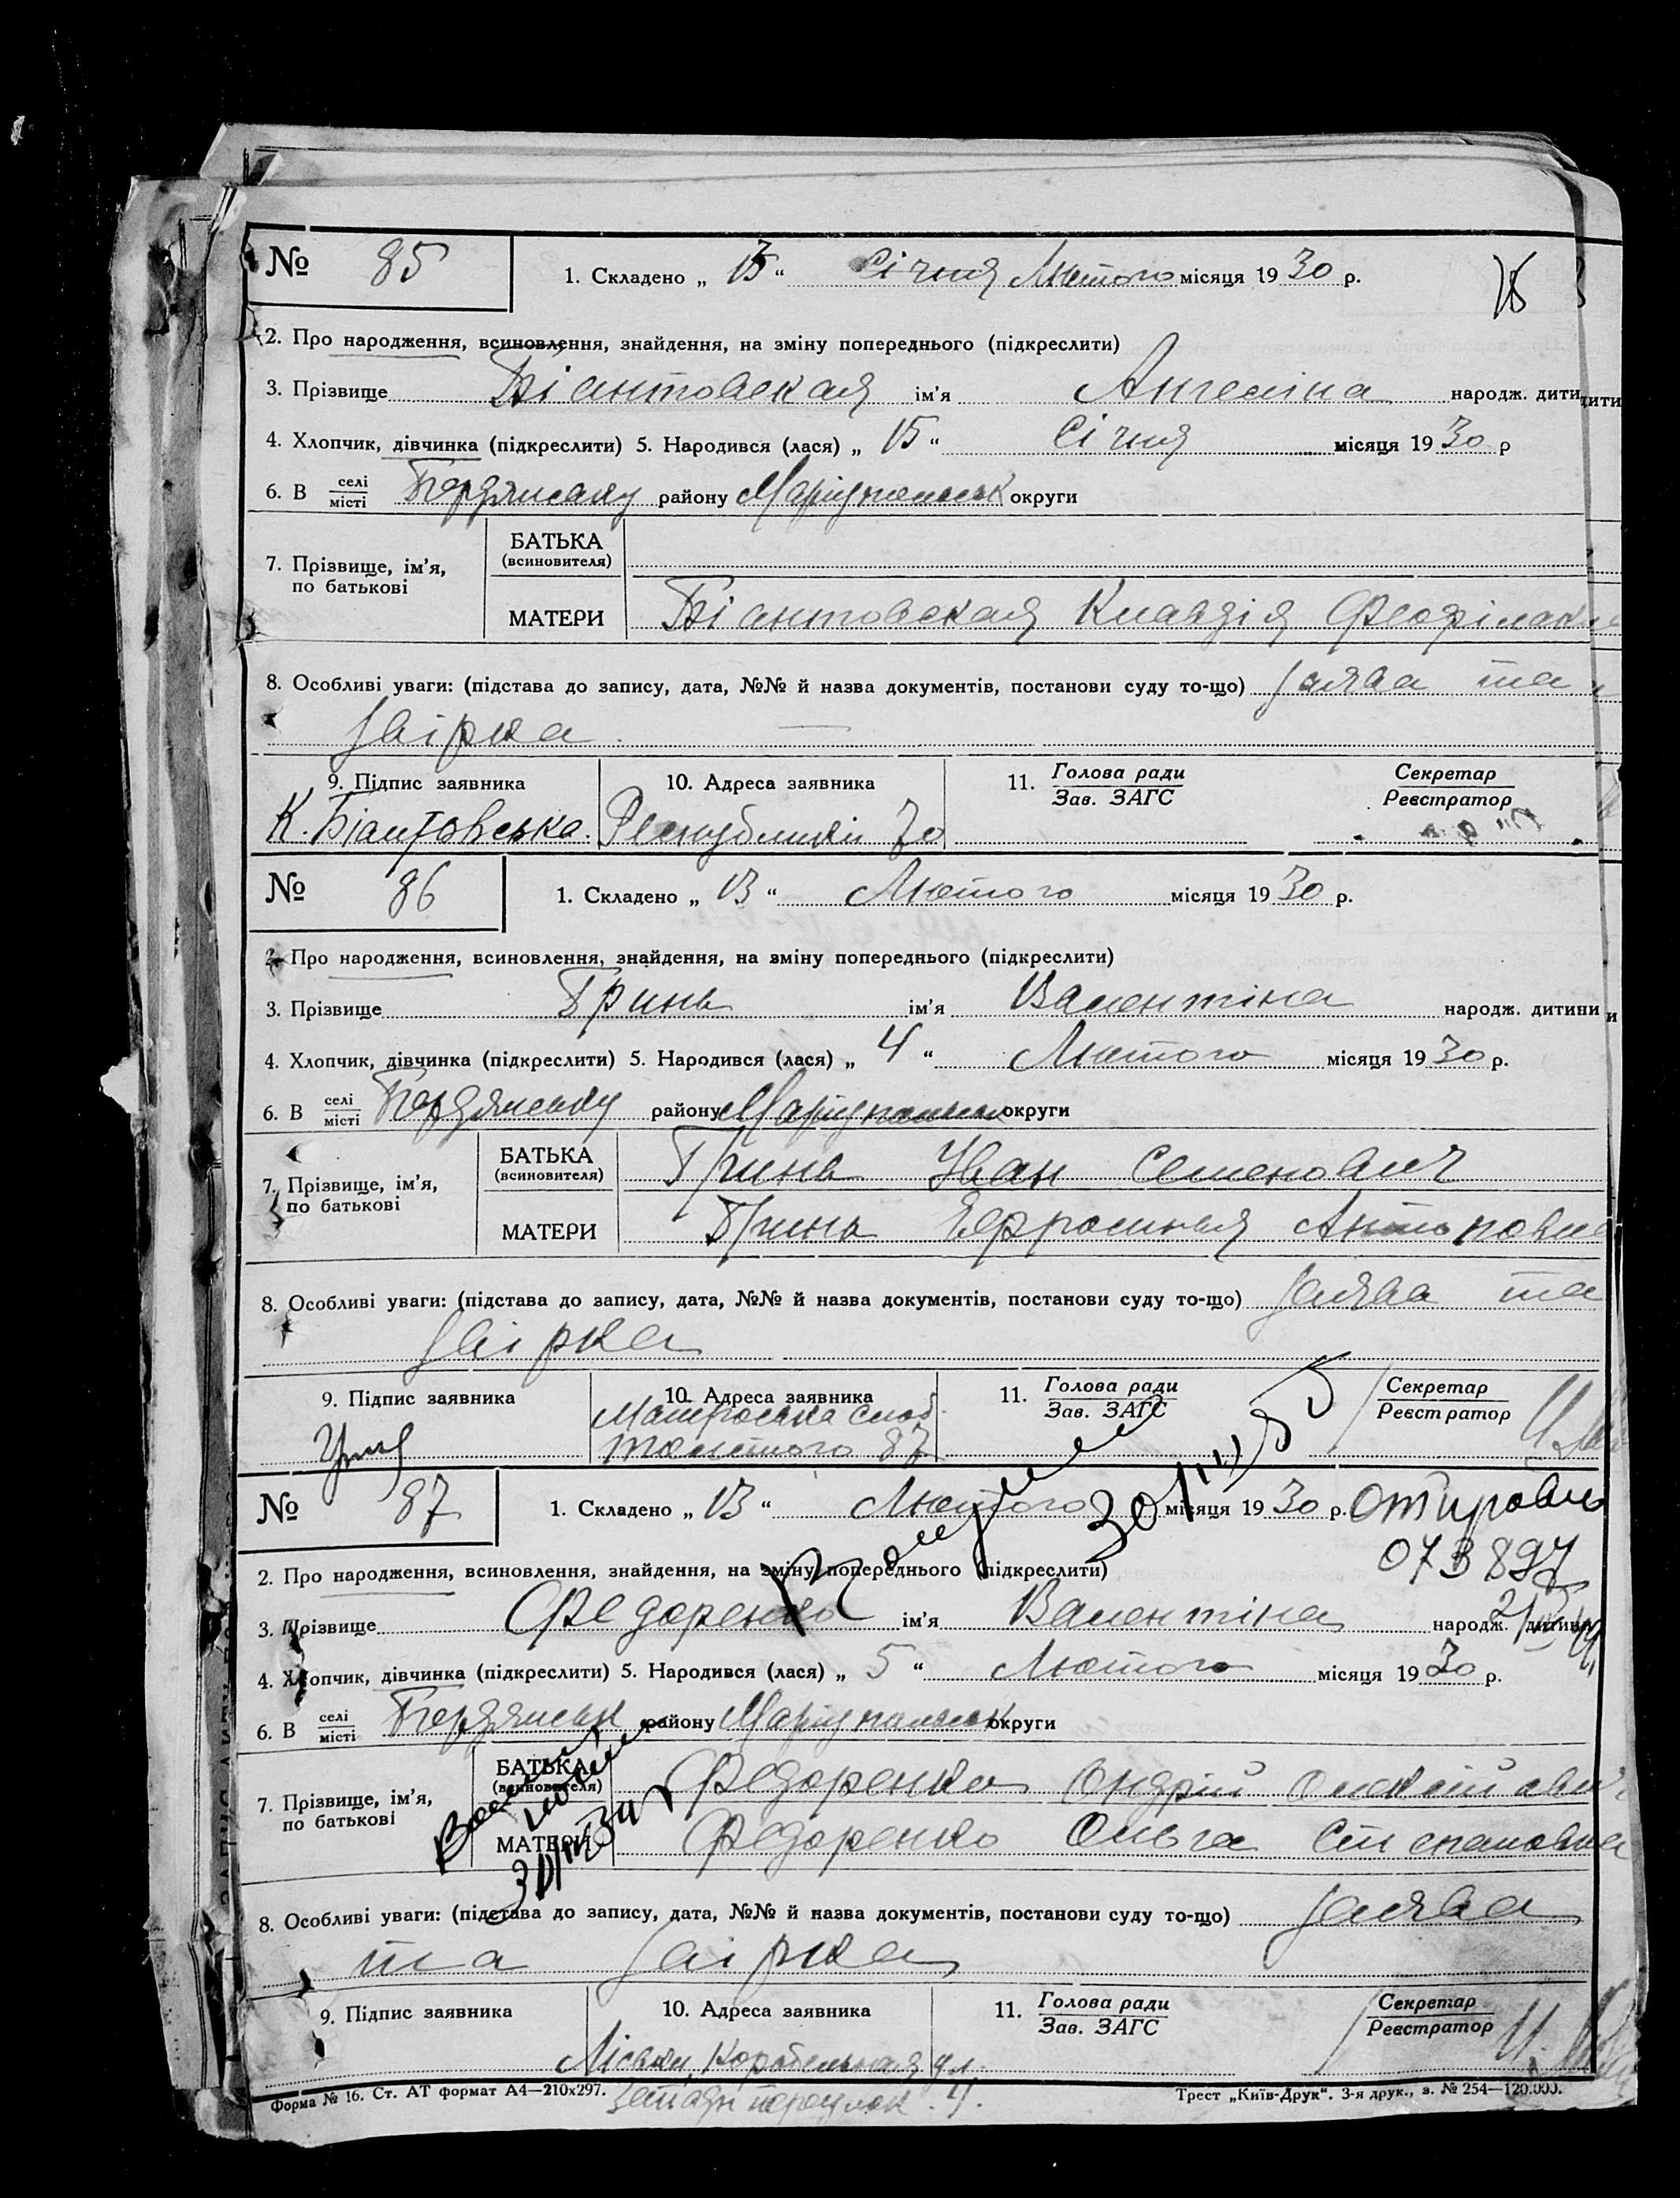 № 85 1. Складено „ 13 “ Січня Лютого місяця 1930 р.
2. Про народження, всиновлення, знайдення, на зміну попереднього (підкреслити)
3. Прізвище Біантовская ім'я Ангеліна народж. дити
4. Хлопчик, дівчинка (підкреслити) 5. Народився (лася) „ 15 “ Січня місяця 1930 р
6. В селі/місті Бердянську району Маріупольськ округи
7. Прізвище, ім'я, по батькові
БАТЬКА (всиновителя)
МАТЕРИ Біантовская Клавдія
8. Особливі уваги: (підстава до запису, дата, №№ й назва документів, постанови суду то-що) заява та
звірка
9. Підпис заявника 10. Адреса заявника 11. Голова ради/Зав. ЗАГС Секретар/Реєстратор
К. Біантовська. Республики 70
№ 86 1. Складено „ 13 “ Лютого місяця 1930 р.
2. Про народження, всиновлення, знайдення, на зміну попереднього (підкреслити)
3. Прізвище Гринь ім'я Валентіна народж. дитини
4. Хлопчик, дівчинка (підкреслити) 5. Народився (лася) „ 4 “ Лютого місяця 1930 р.
6. В селі/місті Бердянську району Маріупольськ округи
7. Прізвище, ім'я, по батькові
БАТЬКА (всиновителя) Гринь Иван Семенович
МАТЕРИ Гринь Ефросинья
8. Особливі уваги: (підстава до запису, дата, №№ й назва документів, постанови суду то-що) заява та
звірка
9. Підпис заявника 10. Адреса заявника 11. Голова ради/Зав. ЗАГС Секретар/Реєстратор
Матроська слоб.
Толстого 87
№ 87 1. Складено „ 13 “ Лютого місяця 1930 р.
073897
2. Про народження, всиновлення, знайдення, на зміну попереднього (підкреслити)
3. Прізвище Федоренко ім'я Валентіна народж. дитини
4. Хлопчик, дівчинка (підкреслити) 5. Народився (лася) „ 5 “ Лютого місяця 1930 р.
6. В селі/місті Бердянськ району Маріупольськ округи
7. Прізвище, ім'я, по батькові
БАТЬКА (всиновителя) Федоренко Ондрій
МАТЕРИ Федоренко Ольга Степановна
8. Особливі уваги: (підстава до запису, дата, №№ й назва документів, постанови суду то-що) заява
та звірка
9. Підпис заявника 10. Адреса заявника 11. Голова ради/Зав. ЗАГС Секретар/Реєстратор
Корабельная ул.
Форма № 16. Ст. АТ формат А4—210х297. Трест „Київ-Друк“. 3-я друк., з. № 254—120.000.